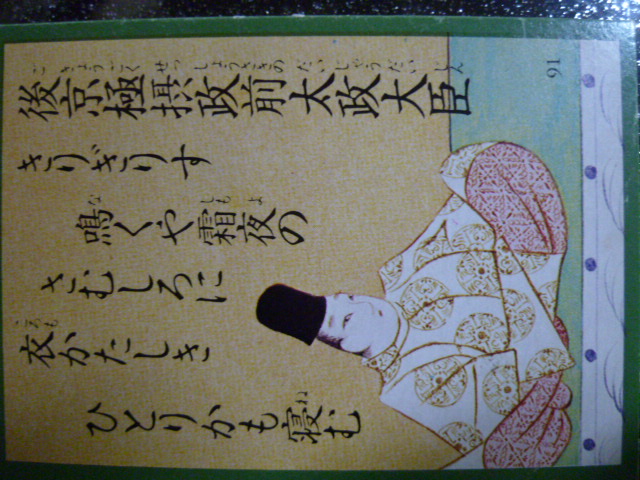 91
後京極摂政前太政大臣
ごきょうごくせっしょうさきのだいじょうだいじん
きりぎりす
鳴くや霜夜の
な しも よ
さむしろに
衣かたしき
ころも
ひとりかも寝む
ね